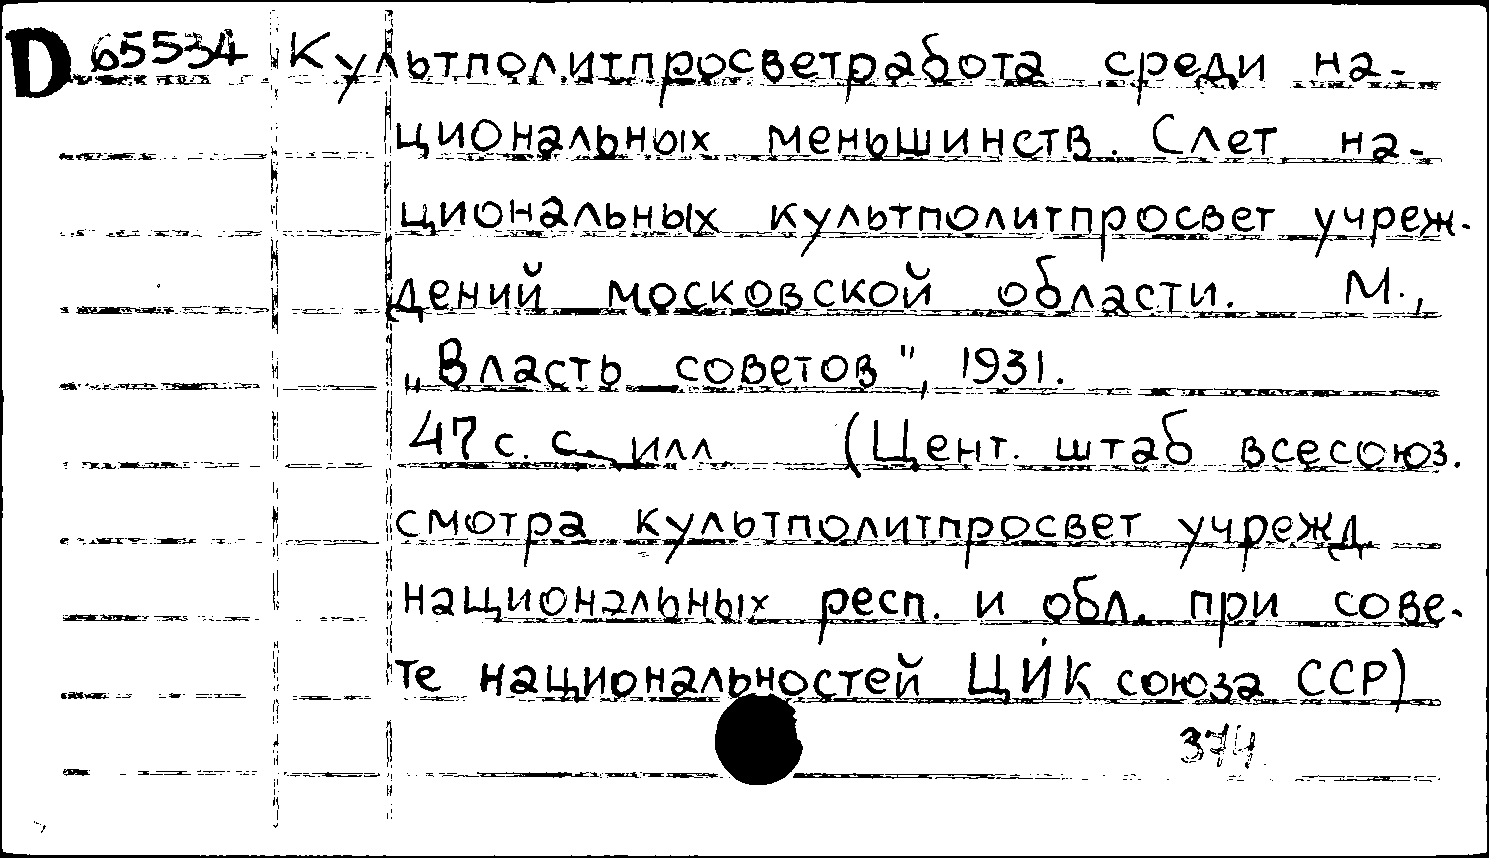 D 65534 Культполитпросветработа среди на-
циональных меньшинств. Слет на-
циональных культполитпросвет учреж-
дений московской области. М.,
„Власть советов", 1931.
47 с. с илл. (Цент. штаб всесоюз.
смотра культполитпросвет учрежд.
национальных респ. и обл. при сове-
те национальностей ЦИК союза ССР)
374